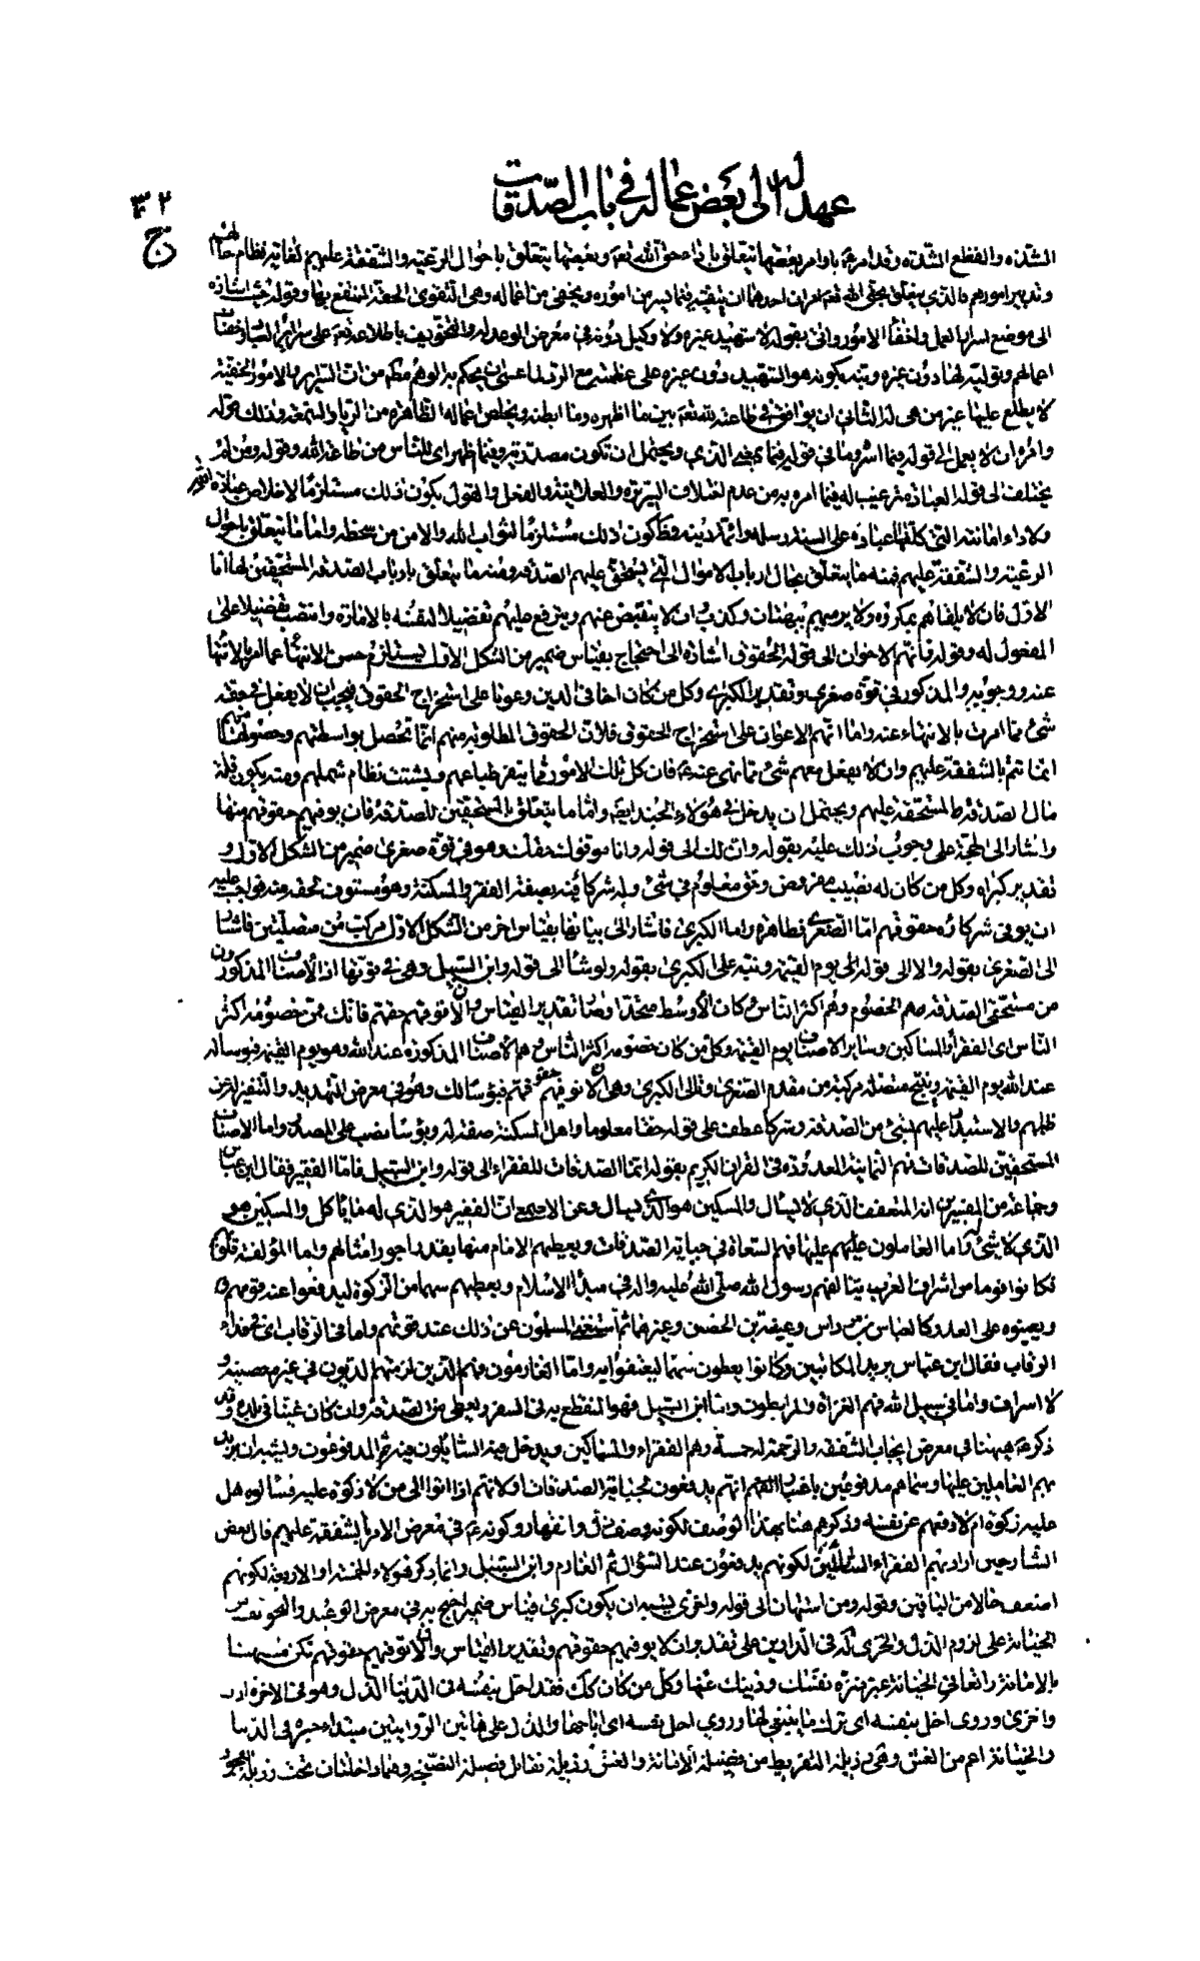 عهد له الى بعض عماله في باب الصدقات
٣٢
ج
الشده والفظع الشده وقد امره ع باوامر بعضها يتعلق باداء حق الله تعه وبعضها يتعلق باحوال الرعيه والشفقة عليهم لغاية نظام حالهم
وتدبير امورهم فالذى يتعلق بحق الله تعه امران احدهما ان يتقيه فيما يسر من اموره ويخفى من اعماله وهى التقوى الحقة المنتفع بها وقوله حيث اشاره
الى موضع اسرار العمل واخفاء الامور وانى بقوله لا شهيد غيره ولا وكيل دونه فى معرض الوعد له والتخويف باطلاعه تعه على سرائر العباد وخفيات
اعمالهم وتوليته لها دون غيره ونبه بكونه هو الشهيد دون غيره على عظمته مع
لا يطلع عليها غيره من هى له الثانى ان يوافق فى طاعته لله تعه بين ما اظهره وما ابطنه ويخلص اعماله الظاهره من الريا والسمعة وذلك قوله
وامره ان لا يعمل الى قوله فيما اسر وما فى قوله فيما بمعنى الذى ويحتمل ان تكون مصدرية وفيما ظهر اى للناس من طاعة الله وقوله ومن لم
يختلف الى قوله العباده ترغيب له فيما امره به من عدم اختلاف السريرة والعلانية والفعل والقول بكون ذلك مستلزما لاخلاص عبادة الله
ولاداء امانته التى كلفها عباده على السنة رسله وائمة دينه وظ كون ذلك مستلزما لثواب الله والامن من سخطه واما ما يتعلق باحوال
الرعيه والشفقة عليهم فمنه ما يتعلق بحال ارباب الاموال التى يستحق عليهم الصدقه ومنه ما يتعلق بارباب الصدقه المستحقين لها اما
الاول فان لا يلقاهم بمكروه ولا يرميهم ببهتان وكذب وان لا ينقبض عنهم ويترفع عليهم تفضيلا لنفسه بالامارة وانتصب تفضيلا على
المفعول له وقوله فانهم الاخوان الى قوله الحقوق اشارة الى احتجاج بقياس ضمير من الشكل الاول يستلزم حسن الانتهاء عما امره بالانتهاء
عنه ووجوبه والمذكور فى قوة صغرى وتقدير الكبرى وكل من كان اخا فى الدين وعونا على استخراج الحقوق فيجب ان لا يفعل فى حقه
شئ مما امرت بالانتهاء عنه واما انهم الاعوان على استخراج الحقوق فلان الحقوق المطلوبة منهم انما تحصل بواسطتهم وحصولها منهم
انما تتم بالشفقة عليهم وان لا يفعل معهم شئ مما نهى عنه ع فان كل تلك الامور مما ينفر طباعهم ويشتت نظام شملهم ومنه يكون قلة
مال الصدقه المستحقة عليهم ويحتمل ان يدخل فى هؤلاء الجند ايضه واما ما يتعلق بالمستحقين للصدقه فان يوفيهم حقوقهم منها
واشار الى الحجة على وجوب ذلك عليه بقوله وان لك الى قوله وانا موفوك حقك وهو فى قوة صغرى ضمير من الشكل الاول و
تقدير كبراه وكل من كان له نصيب مفروض وحق معلوم فى شئ وله شركاء فيه بصفة الفقر والمسكنة وهو مستوف لحقه منه فواجب عليه
ان يوفى شركاءه حقوقهم اما الصغرى فظاهره واما الكبرى فاشار الى بيانها بقياس اخر من الشكل الاول مركب من متصلتين فاشار
الى الصغرى بقوله والا الى قوله الى يوم القيمة ونبه على الكبرى بقوله وبؤسا الى قوله وابن السبيل وهى فى قوتها اذ الاصناف المذكورون
من مستحقى الصدقه هم الخصوم وهم اكثر الناس كان الاوسط متحدا وصار تقدير القياس وان لا توفهم حقهم فانك ممن خصومه اكثر
الناس من الفقراء والمساكين وساير الاصناف يوم القيمة وكل من كان خصومه اكثر الناس وهم الاصناف المذكورة عند الله وهو يوم القيمة فبؤسا له
عند الله يوم القيمة وينتج متصلة مركبة من مقدم الصغرى وتالى الكبرى وهى ان لا توفهم حقوقهم فبؤسا لك وهو فى معرض التهديد والتنفير عن
ظلمهم والاستبداد عليهم بشئ من الصدقة وشركاء عطف على قوله حقا معلوما واهل المسكنة صفة له وبؤسا نصب على المصدر واما الاصناف
المستحقين للصدقات فهم الثمانية المعدودة فى القران الكريم بقوله انما الصدقات للفقراء الى قوله وابن السبيل فاما الفقير فقال ابن عباس
وجماعة من المفسرين انه المتعفف الذى لا يسأل والمسكين هو الذى يسأل وعن الاصمعى ان الفقير هو الذى له ما ياكل والمسكين هو
الذى لا شئ له واما العاملون عليها فهم السعاة فى جباية الصدقات ويعطيهم الامام منها بقدر اجور امثالهم واما المؤلفة قلوبهم
فكانوا قوما من اشراف العرب يتالفهم رسول الله صلى الله عليه واله فى مبدأ الاسلام ويعطيهم سهما من الزكوة ليدفعوا عنه قومهم
ويعينوه على العدو كالعباس بن مرداس وعيينة بن الحصن وغيرهما ثم استغنى المسلمون عن ذلك عند قوتهم واما فى الرقاب اى فى فداء
الرقاب فقال ابن عباس يريد المكاتبين وكانوا يعطون سهما ليعتقوا به واما الغارمون فهم الذين لزمتهم الديون فى غير معصية و
لا اسراف واما فى سبيل الله فهم الغزاة والمرابطون واما ابن السبيل فهو المنقطع به فى السفر ويعطى من الصدقه وان كان غنيا فى بلده وقد
ذكر ع ههنا فى معرض ايجاب الشفقه والرحمة له خمسة وهم الفقراء والمساكين ويدخل فيه السائلون فيه ثم المدفوعون ويشبه ان يريد
بهم العاملين عليها وسماهم مدفوعين باعتبار انهم يدفعون لجباية الصدقات او لانهم اذا اتوا الى من لا زكوة عليه فسألوه هل
عليه زكوة ام لا دفعهم عن نفسه وذكرهم هنا بهذا الوصف لكونه وصف ذل وانقهار وكونه ع فى معرض الامر بالشفقة عليهم قال بعض
الشارحين اراد بهم الفقراء السائلين لكونهم يدفعون عند السؤال ثم الغارم وابن السبيل وانما ذكر هؤلاء الخمسة او الاربعة لكونهم
اضعف حالا من الباقين وقوله ومن استهان الى قوله واخزى يشبه ان يكون كبرى قياس ضمير احتج به فى معرض الوعيد والتخويف من
الخيانة على لزوم الذل والخزى له فى الدارين على تقدير ان لا يوفيهم حقوقهم وتقدير القياس وان لا توفيهم حقوقهم تكن مستهينا
بالامانة راتعا فى الخيانة غير منزه نفسك ودينك عنها وكل من كان كك فقد احل بنفسه فى الدنيا الذل وهو فى الاخرة اذل
واخزى وروى اخل بنفسه اى ترك ما ينبغى لها وروى احل نفسه اى اباحها والذل على هاتين الروايتين مبتداء خبره فى الدنيا
والخيانة اعم من الغش وهى رذيلة التفريط من فضيلة الامانة والغش رذيلة تقابل فضيلة النصيحة وهما داخلتان تحت رذيلة الفجور